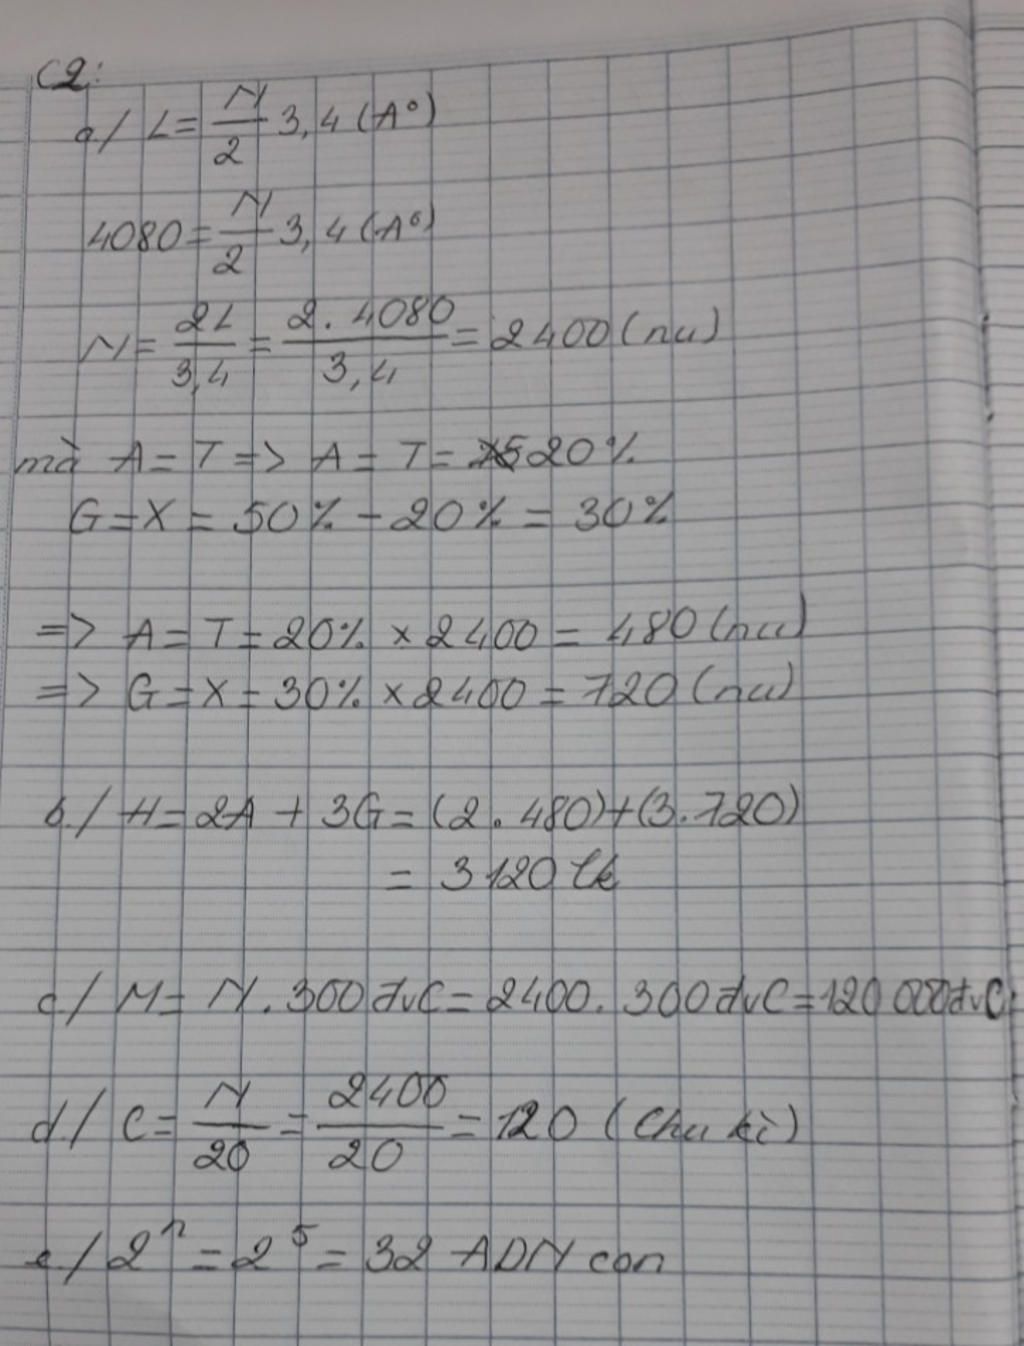 C2:
a/ L = N/2 3,4 (A°)
4080 = N/2 3,4 (A°)
N = 2L/3,4 = 2.4080/3,4 = 2400 (nu)
mà A = T => A = T = 20%
G = X = 50% - 20% = 30%
=> A = T = 20% × 2400 = 480 (nu)
=> G = X = 30% × 2400 = 720 (nu)
b./ H = 2A + 3G = (2.480)+(3.720)
= 3120 lk
c/ M = N.300đvC = 2400.300đvC = 120 000đvC
d./ C = N/20 = 2400/20 = 120 (Chu kì)
e/ 2ⁿ = 2⁵ = 32 ADN con